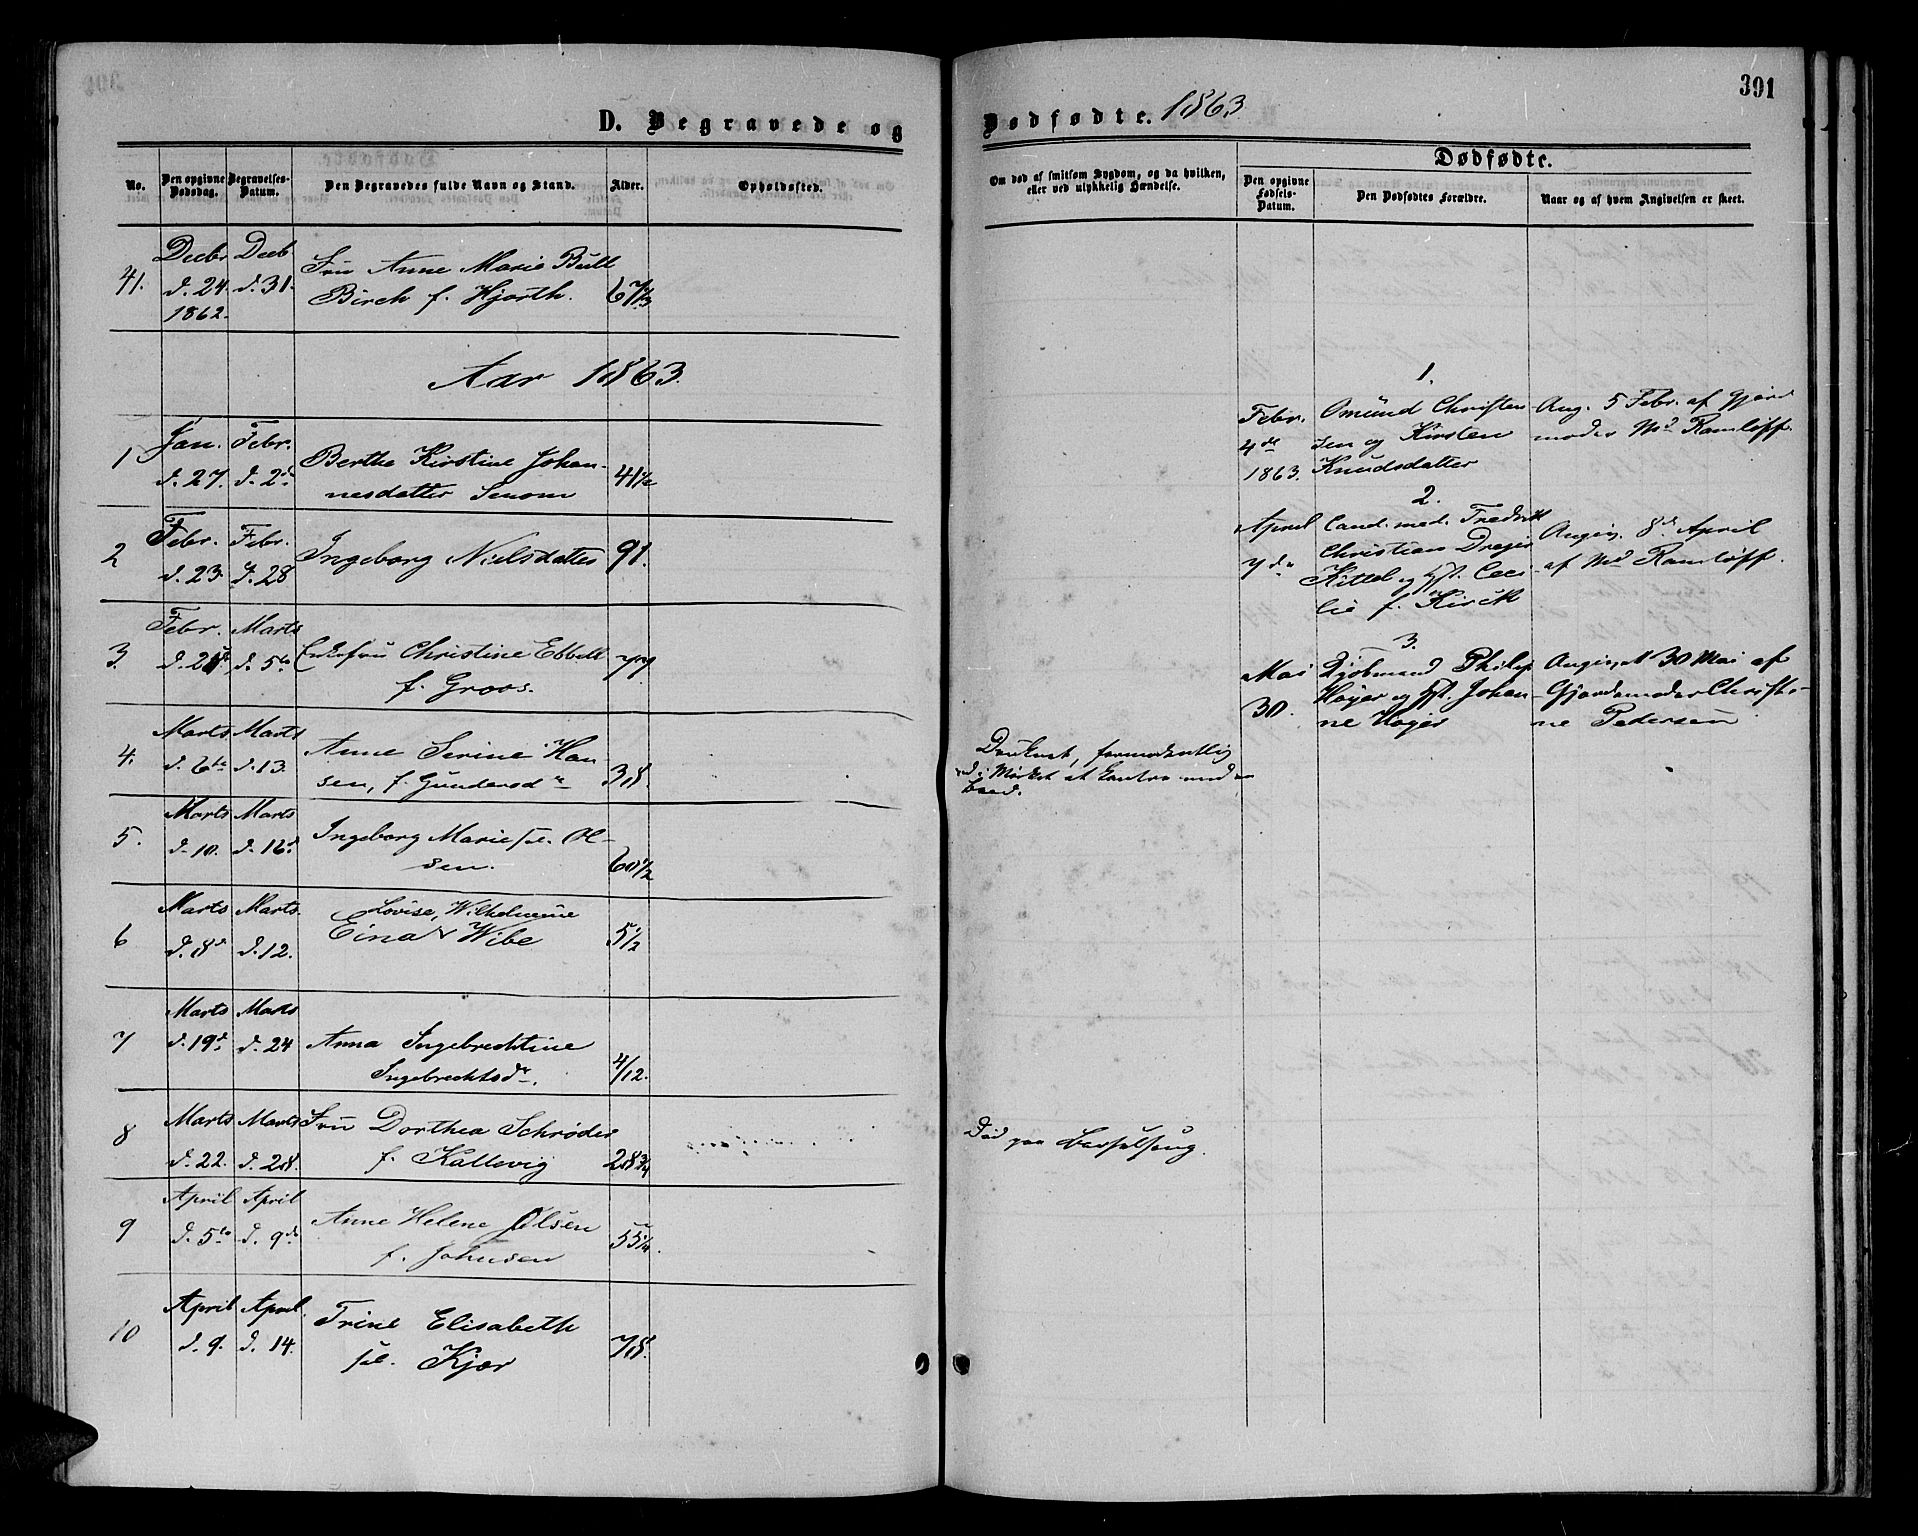 391
D. Begravede og
Dødfødte. 1863
No.
Den opgivne Dødsdag.
Begravelses-Datum.
Den Begravedes fulde Navn og Stand.
Alder.
Opholdssted.
Om død af smitsom Sygdom, og da hvilken,
eller ved ulykkelig Hændelse.
Dødfødte.
Den opgivne Fødsels-Datum.
Den Dødfødtes Forældre.
Naar og af hvem Angivelsen er skeet.
Decbr Decb
41. d. 24. d. 31. Fru Anne Marie Bull
1862. Birch f. Hjorth.
Aar 1863.
Jan. Febr.
1 d. 27. d. 2d Berthe Kirstine Johan-
nesdatter Senom 41 1/2
Febr. Febr.
2 d. 23. d. 28 Ingeborg Nielsdatter 91.
Febr. Marts
3. d. 5te Enkefru Christine Ebbell
f. Groos.
Marts Marts
4. d. 6te d. 13. Anne Serine Han-
sen, f. Gundersdr 38.
Marts Marts
5. d. 10. d. 16d Ingeborg Marie sel. Ol-
sen. 60 1/2
Marts Marts. Lovise, Wilhelmine
6 d. 8d d. 12. Eina Wibe 5 1/2
Marts Marts
7 d. 19d d. 24 Anna Ingebrechtine
Ingebrechtsdr. 4/12.
Marts Marts Fru Dorthea Schrøder
8 d. 22. d. 28. f. Kallevig 28 3/4
April April
9 d. 5te d. 9de Anne Helene Olsen
f. Johnsen 55 1/4.
April April.
10 d. 9. d. 14. Trine Elisabeth
sel. Kjær 78.
Druknet, formodentlig
ved i Mørket at
Død paa Barselseng.
1.
Febr. Omund Christen Ang. 5 Febr. af Gjord
4de sen og Kirsten moder Md Ramløff.
1863. Knudsdatter
2.
April Cand. med. Fredrik Angiv. 8d April
7de Christian Drejer af Md Ramløff.
Kittel og Hst. Ceci
lie f. Kirck
3.
Mai Kjøbmand Philip Angivet 30 Mai af
30. Høyer og Hst. Johan- Gjordemoder Christi-
ne Høyer ne Pedersen